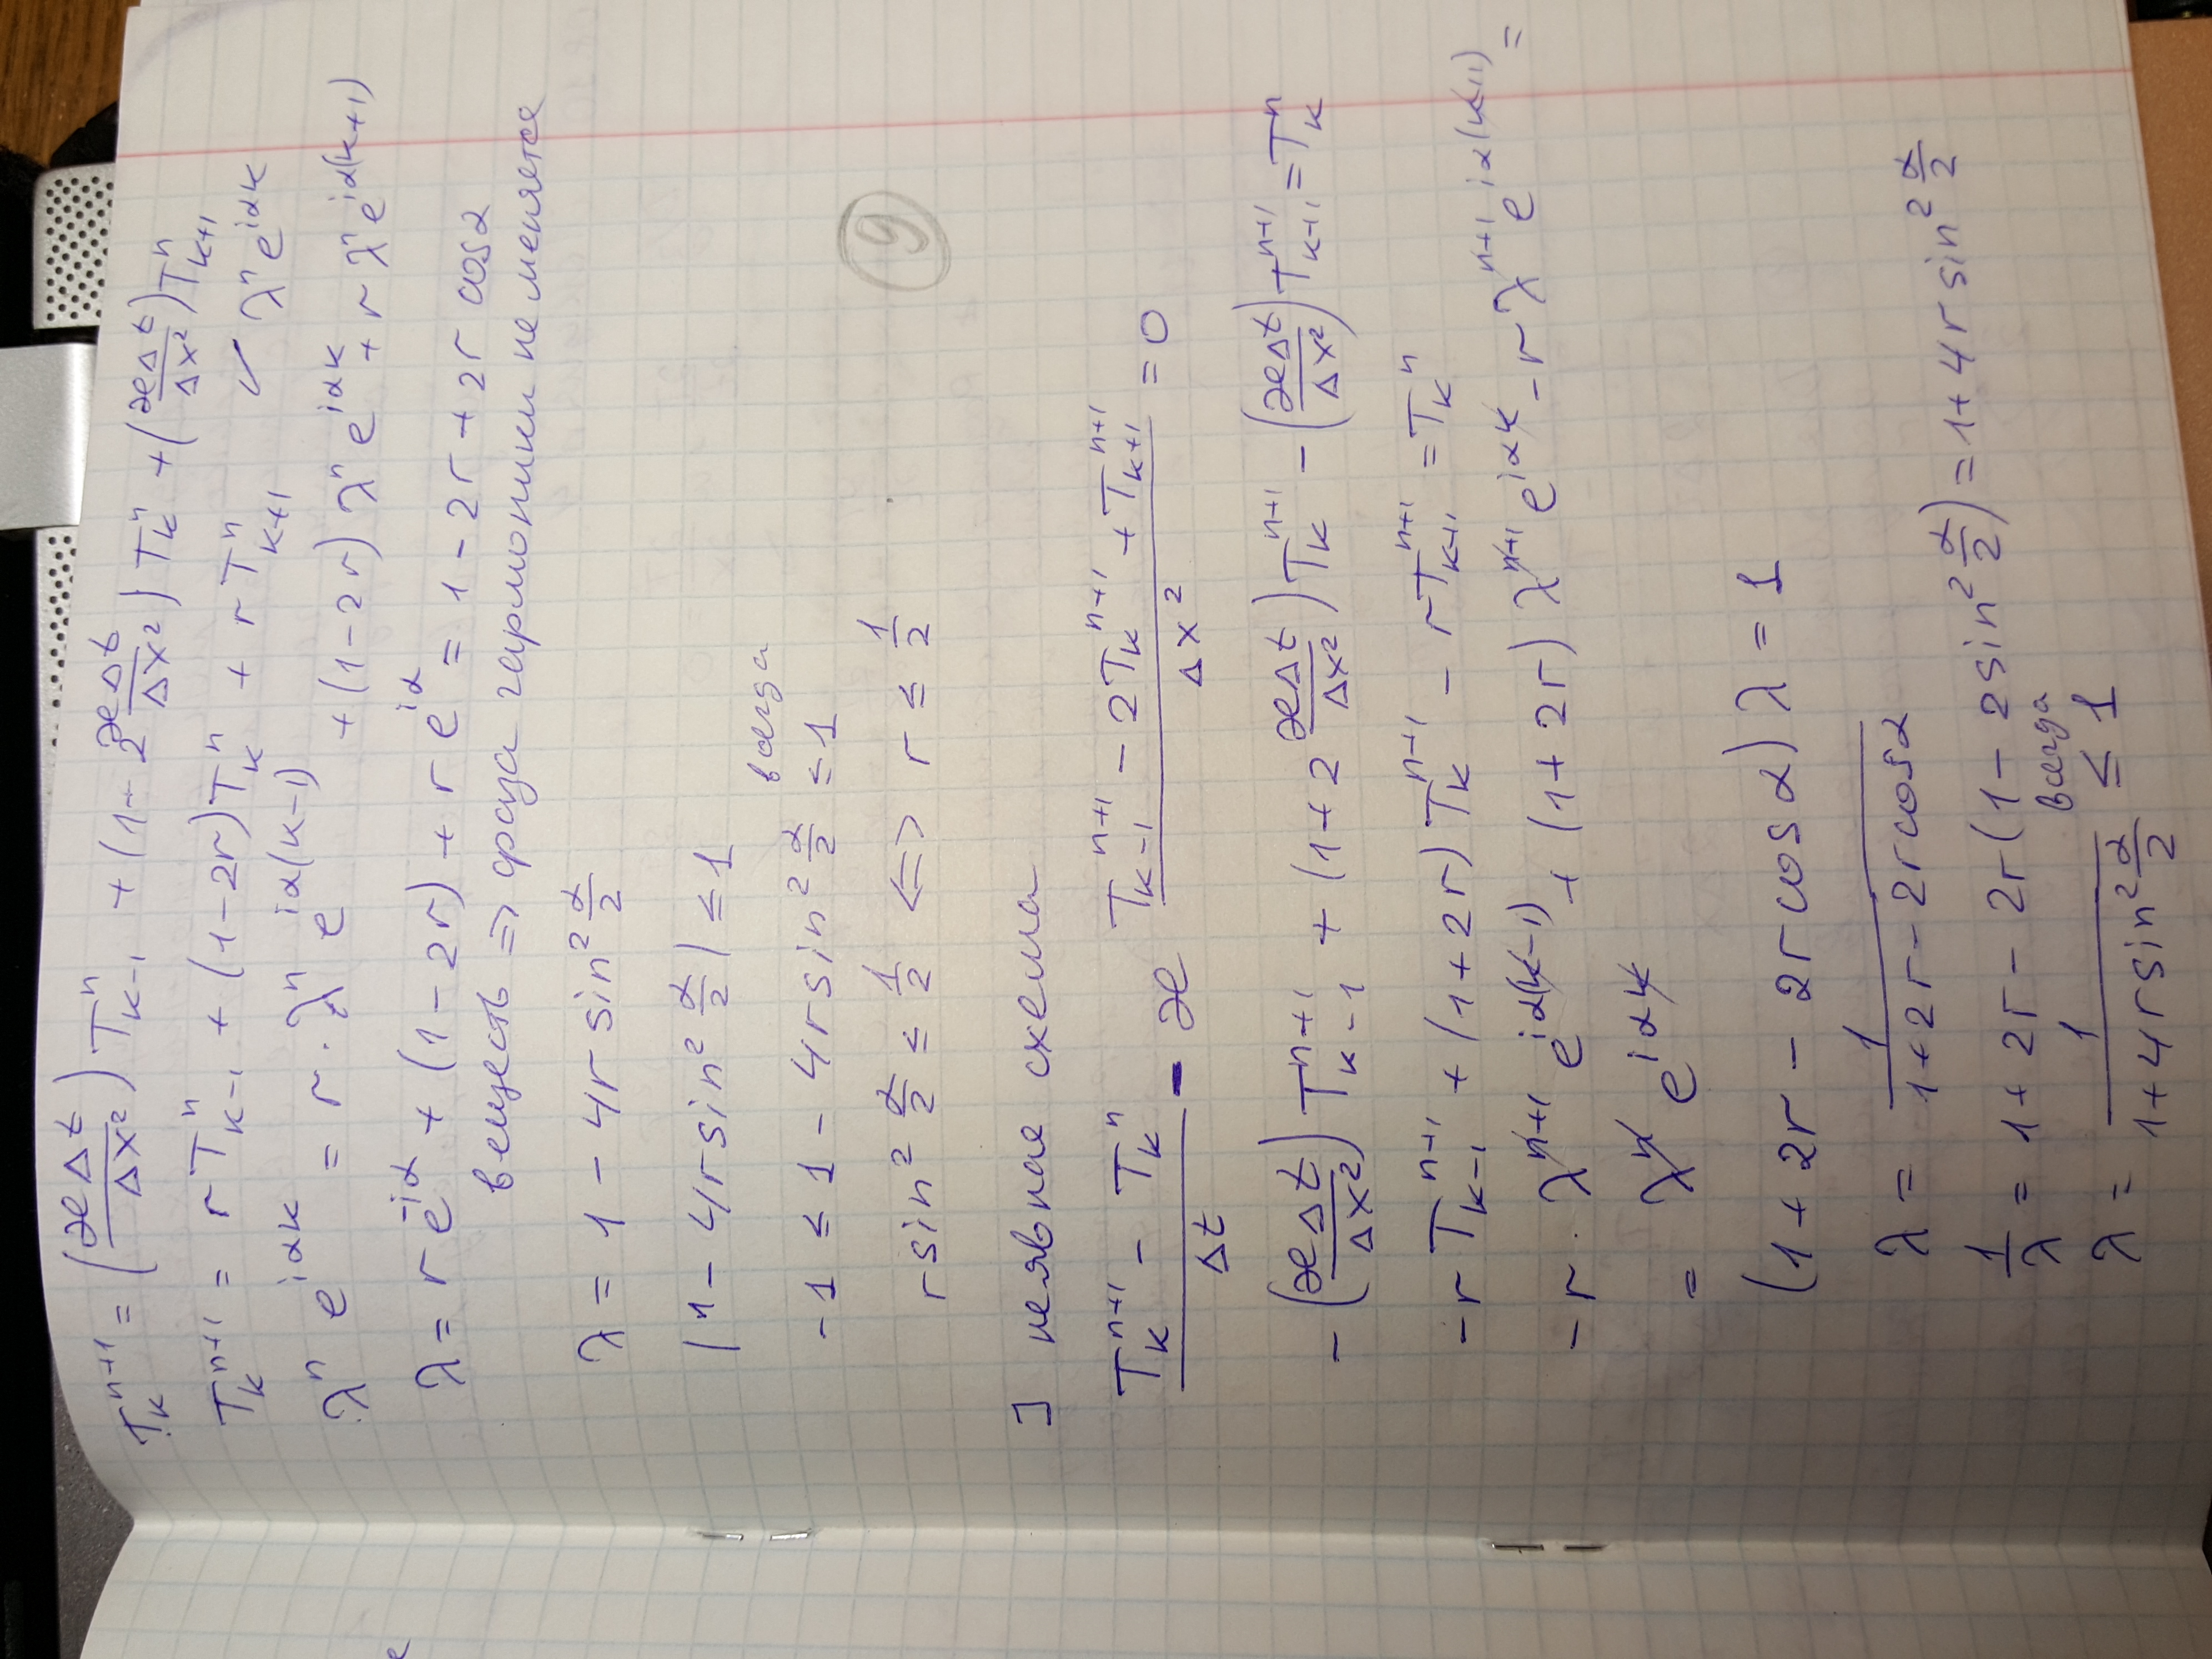 T_k^{n+1} = (æΔt/Δx²) T_{k-1}^n + (1 - 2 æΔt/Δx²) T_k^n + (æΔt/Δx²) T_{k+1}^n
T_k^{n+1} = r T_{k-1}^n + (1-2r) T_k^n + r T_{k+1}^n ✓ λ^n e^{iαk}
λ^n e^{iαk} = r · λ^n e^{iα(k-1)} + (1-2r) λ^n e^{iαk} + r λ^n e^{iα(k+1)}
λ = r e^{-iα} + (1-2r) + r e^{iα} = 1 - 2r + 2r cosα
веществ ⇒ фаза гармоники не меняется
λ = 1 - 4r sin² α/2
|1 - 4r sin² α/2| ≤ 1
всегда
-1 ≤ 1 - 4r sin² α/2 ≤ 1
r sin² α/2 ≤ 1/2 ⇔ r ≤ 1/2
9
] неявная схема
(T_k^{n+1} - T_k^n)/Δt - æ (T_{k-1}^{n+1} - 2T_k^{n+1} + T_{k+1}^{n+1})/Δx² = 0
-(æΔt/Δx²) T_{k-1}^{n+1} + (1 + 2 æΔt/Δx²) T_k^{n+1} - (æΔt/Δx²) T_{k+1}^{n+1} = T_k^n
-r T_{k-1}^{n+1} + (1+2r) T_k^{n+1} - r T_{k+1}^{n+1} = T_k^n
-r · λ^{n+1} e^{iα(k-1)} + (1+2r) λ^{n+1} e^{iαk} - r λ^{n+1} e^{iα(k+1)} =
= λ^n e^{iαk}
(1 + 2r - 2r cosα) λ = 1
λ = 1/(1+2r-2r cosα)
1/λ = 1 + 2r - 2r(1 - 2sin² α/2) = 1 + 4r sin² α/2
всегда
λ = 1/(1+4r sin² α/2) ≤ 1